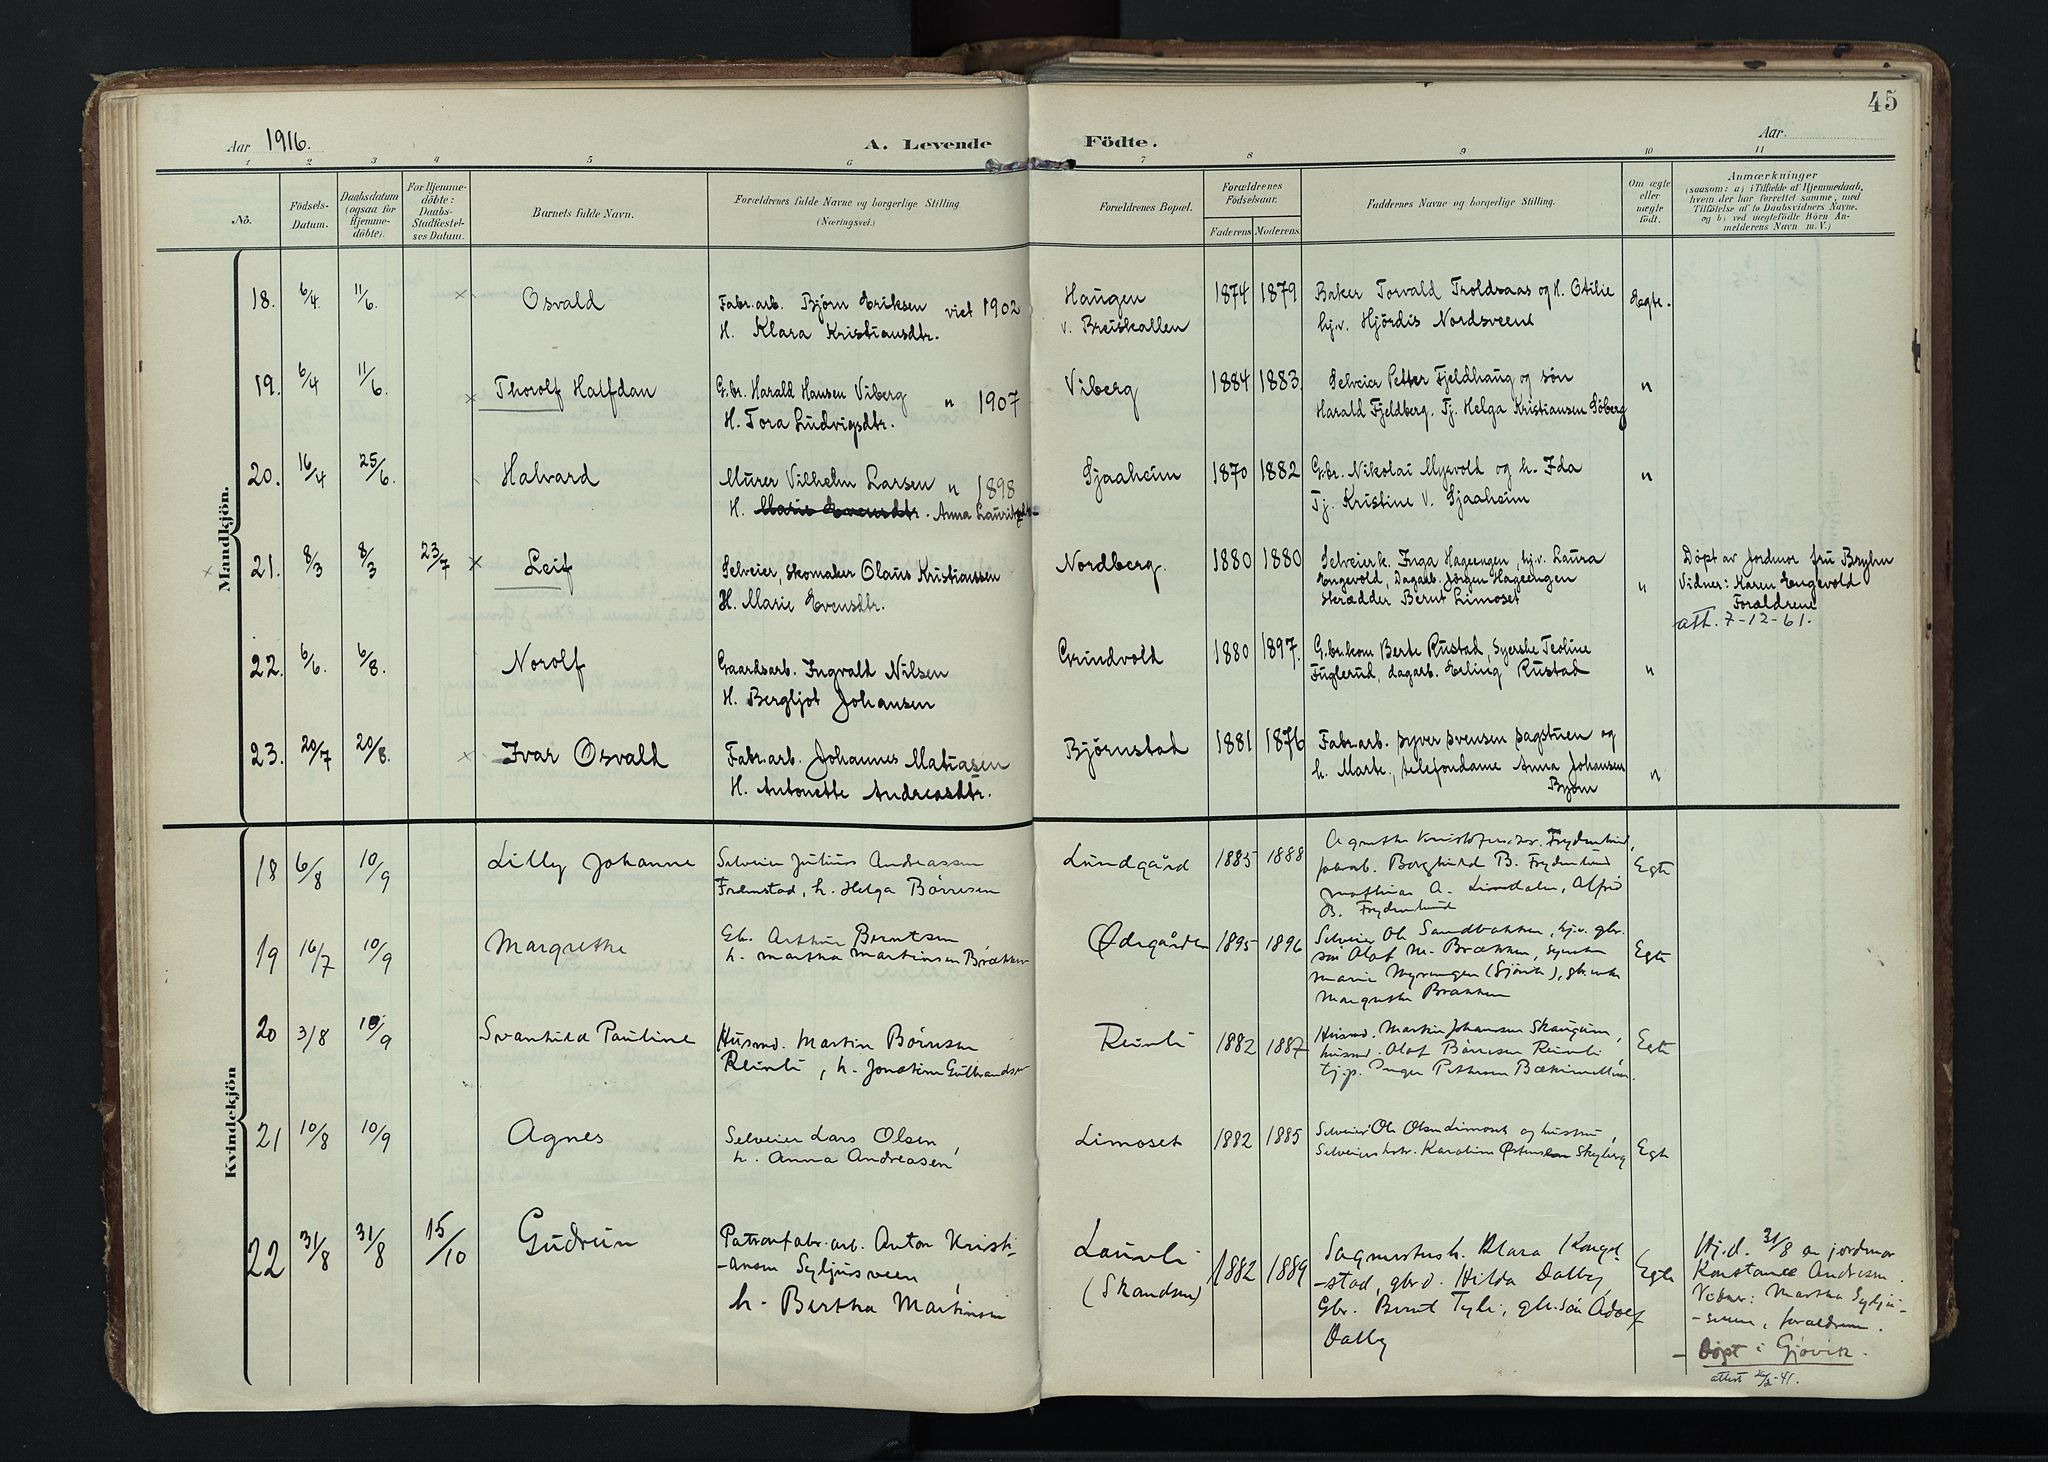 45
Aar 1916.
A. Levende Födte.
Aar.
1 2 3 4 5 6 7 8 9 10 11
No.
Födsels-Datum.
Daabsdatum (ogsaa for Hjemme-döbte).
For Hjemme-döbte: Daabs-Stadfæstel-ses Datum.
Barnets fulde Navn.
Forældrenes fulde Navne og borgerlige Stilling.
(Næringsvei.)
Forældrenes Bopæl.
Forældrenes Födselsaar.
Faderens. Moderens.
Faddernes Navne og borgerlige Stilling.
Om ægte eller uægte födt.
Anmærkninger
(saasom: a) i Tilfælde af Hjemmedaab,
hvem der har forrettet samme, med
Tilföielse af to Daabsvidners Navne,
og b) ved uægtefödte Börn An-
melderens Navn m. V.)
Mandkjön.
18. 6/4. 11/6. × Osvald
Fabr.arb. Bjørn Eriksen viet 1902
H. Klara Kristiansdtr.
Haugen
v. Breiskallen
1874 1879
Baker Torvald Troldsaas og H. Otilie
hj.v. Hjördis Nordsveen
Egte.
19. 6/4 11/6. × Thorolf Halfdan
G.br. Harald Hansen Viberg " 1907
H. Tora Ludvigsdtr.
Viberg
1884 1883.
Selveier Petter Fjeldhaug og søn
Harald Fjeldberg. Tj. Helga Kristiansen Söberg
"
20. 16/4 25/6. Halvard
Murer Vilhelm Larsen " 1898
H. Marie Evensdtr. Anna
Sjaaheim
1870 1882
G.br. Nikolai Myrvold og h. Ida
Tj. Kristine V. Sjaaheim
"
× 21. 8/3 8/3 23/7 × Leif
Selveier, skomaker Olaus Kristianssen
H. Marie Evensdtr.
Nordberg.
1880 1880
Selveierk. Inga Hageengen, hj.v. Laura
Engevold, Dagarb. Jörgen Hageengen
Skrædder Bernt Limoset
"
Döpt av Jordmor fru Bryhn
Vidner: Karen Engevold
Forældrene
att. 7-12-61.
22. 6/6. 6/8. Norolf
Gaardsarb. Ingvald Nilsen
H. Bergljot Johansen
Grindvold
1880 1897.
G.br.kone Berte Rustad, Syerske Teoline
Fuglerud, dagarb. Erling Rustad
"
23. 20/7 20/8. × Ivar Osvald
Fabr.arb. Johannes Matiasen
H. Antonette Andreasdtr.
Bjørnstad
1881 1876
Fabr.arb. Syver Svensen Sagstuen og
h. Marte, telefondame Anna Johansen
Bjørn
"
Kvindekjön
18 6/8 10/9 Lilly Johanne
Selveier Julius Andreassen
Fremstad, h. Helga Børresen
Lundgård
1885 1888
Frydenlund,
Borghild B. Frydenlund
Mathias A. Limdalen, Alfred
B. Frydenlund
Egte
19 16/7 10/9 Margrethe
Gb. Arthur Berntsen
h. Martha Martinsen Brækken
Ødegården
1895 1896
Selveier Ole Sandbakken, hj.v. gbr.
søn Olaf M. Brækken, syerske
Marie Myrengen (Gjøvik),
Margrethe Brækken
Egte
20 3/8 10/9 Svanhild Pauline
Husmd. Martin Børresen
Reinli, h. Jonatine Gulbrandsen
Reinli
1882 1887
Husmd. Martin Johansen Skaugum,
husmd. Olaf Børresen Reinli,
tj.p. Inger Pettersen
Egte
21 10/8 10/9 Agnes
Selveier Lars Olsen,
h. Anna Andreasen
Limoset
1882 1885
Selveier Ole Olsen Limoset og hustru,
Karoline Østensen Skyberg
Egte
22 31/8 31/8 15/10 Gudrun
Patronfabr.arb. Anton Kristi-
-ansen Syljusveen,
h. Bertha Martinsen
Lauvli
(Skandsen)
1882 1889
Sagmesterh. Klara Kongel-
-stad, gbrd. Hilda Dalby,
Gbr. Bernt Tyli, gbr.søn Adolf
Dalby
Egte
Hj.d. 31/8 av jordmor
Konstance Andresen.
Vidner: Martha Sylju-
-sveen, forældrene.
- Døpt i Gjøvik.
attest -41.